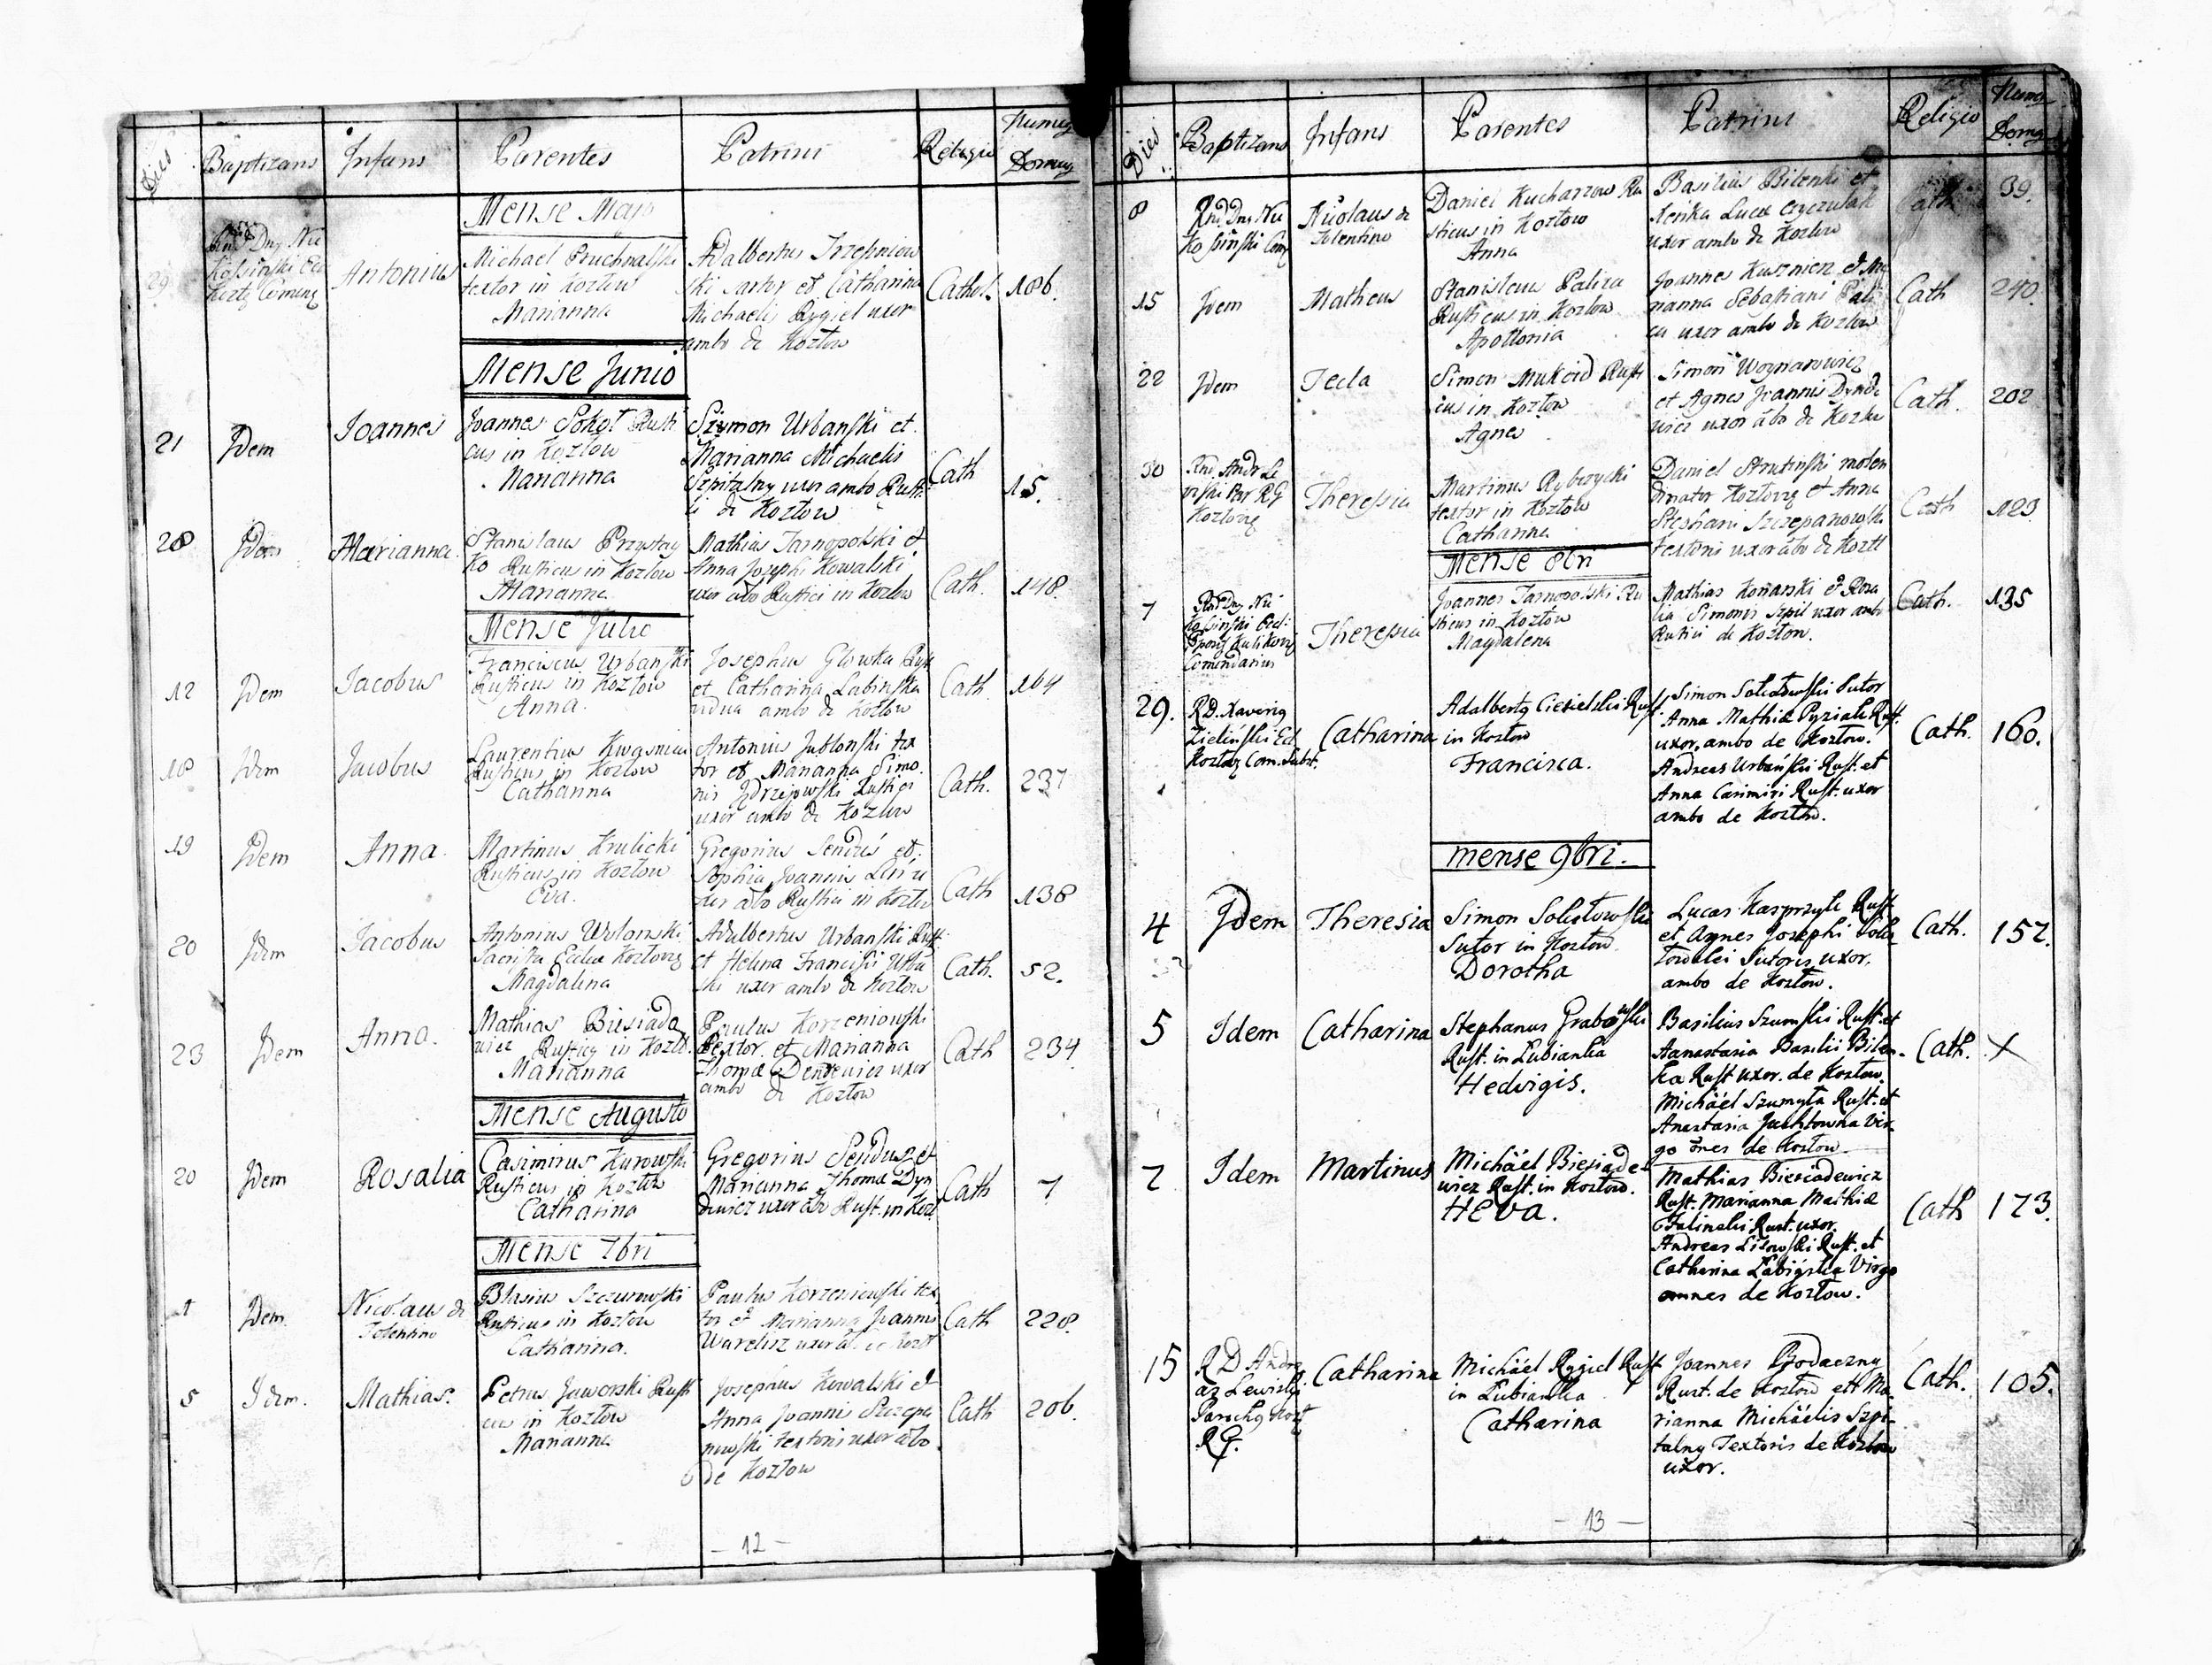 Dies Baptizans Infans Parentes Patrini Religio Numerg Domus
Mense Majo
29
Rnd Dng Nic
Kossinski Ecl
Kozlg Comeng
Antonius
Michael Pruchnalski
textor in Kozłow
Marianna
Adalbertus Trzesniow
ski sartor et Catharina
Michaelis Rygiel uxor
ambo de Kozłow
Cathol. 186.
Mense Junio
21 Idem Joannes
Joannes Sokoł Rusti
cus in Kozłow
Marianna
Szymon Urbanski et
Marianna Michaelis
Szpitalny uxor ambo Rusti
ci de Kozłow
Cath 15.
28 Idem Marianna
Stanislaus Przystay
ko Rusticus in Kozłow
Marianna
Mathias Tarnopolski et
Anna Josephi Kowalski
uxor abo Rustici in Kozłow
Cath. 148.
Mense Julio
12 Idem Jacobus
Franciscus Urbanski
Rusticus in Kozłow
Anna.
Josephus Glowka Rust
et Catharina Lubinska
vidua ambo de Kozłow
Cath. 164
18 Idem Jacobus
Laurentius Kwasnica
Rusticus in Kozłow
Catharina
Antonius Jablonski tex
tor et Marianna Simo
nis Jdrzejowski Rustici
uxor ambo de Kozłow
Cath. 237
19 Idem Anna.
Martinus Krulicki
Rusticus in Kozłow
Eva.
Gregorius Sendus et
Sophia Joannis
uxor abo Rustici in Kozłow
Cath 138
20 Idem Jacobus
Antonius Wolanski
Sacrista Eclae Kozlovg
Magdalena
Adalbertus Urbanski Rust.
et Helena Francisci Urba
ski uxor ambo de Kozłow
Cath. 52.
23 Idem Anna.
Mathias Biesiada
wicz Rusticg in Kozł.
Marianna
Paulus Korzeniowski
Textor. et Marianna
Thomæ Denkewicz uxor
ambo de Kozłow
Cath 234
Mense Augusto
20 Idem Rosalia
Casimirus Kurowski
Rusticus in Kozłow
Catharina
Gregorius Sendusz et
Marianna Thomæ Dyn
dowicz uxor abo Rust. in Kozł
Cath 7
Mense 7bri
1 Idem
Nicolaus de
Tolentino
Blasius Szczurowski
Rusticus in Kozłow
Catharina.
Paulus Korzeniowski tex
tor et Marianna Joannis
Warelisz uxor ab. de Kozł
Cath 228.
5 Idem. Mathias.
Petrus Jaworski Rusti
cus in Kozłow
Marianna
Josephus Kowalski et
Anna Joannis Szczepa
nowski textoris uxor abo
de Kozłow
Cath 206.
- 12 -
Dies Baptizans Infans Parentes Patrini Religio Numerg Domg
8
Rnd Dng Nic
Kossinski Comg
Nicolaus de
Tolentino
Daniel Kucharzow Ru
sticus in Kozłow
Anna
Basilius Bilenki et
Xenka Lucæ
uxor ambo de Kozłow
Cath 39.
15 Idem Matheus
Stanislaus Paliza
Rusticus in Kozłow
Apollonia
Joannes Kusznierz et Ma
rianna Sebastiani Pali
za uxor ambo de Kozłow
Cath 240.
22 Idem Tecla
Simon Mukoid Rusti
cus in Kozłow
Agnes
Simon Woynarowicz
et Agnes Joannis Dynde
wicz uxor abo de Kozłow
Cath. 202
30
Rnd Andr Le
wiski Par R G
Kozlovg
Theressia
Martinus Rybczycki
textor in Kozłow
Catharina
Daniel Strutinski molen
dinator Kozlovg et Anna
Stephani Szczepanowski
Textoris uxor abo de Kozłł
Cath 123
Mense 8bri
7
Rnd Dng Nic
Kossinski Ecl:
Kulikovg
Comendarius
Theressia
Joannes Tarnopolski Ru
sticus in Kozłow
Magdalena
Mathias Koniarski et Rosa
lia Simonis Szpil uxor amb
Rustici de Kozłow.
Cath. 135
29.
RD. Xaverig
Zieliński Ecl
Kozlovg Com. Subst.
Catharina
Adalbertg Ciesielski Rust.
in Kozłow
Francisca.
Simon Sokołowski Sutor
Anna Mathiæ Pyziak Rust.
uxor. ambo de Kozłow.
Andreas Urbański Rust. et
Anna Casimiri Rust. uxor
ambo de Kozłow.
Cath. 160.
mense 9bri.
4 Idem Theresia
Simon Sokołowski
Sutor in Kozłow
Dorotha
Lucas Kasprzyk Rust.
et Agnes Josephi Soko
łowski Sutoris uxor.
ambo de Kozłow.
Cath. 152.
5 Idem Catharina
Stephanus Grabowski
Rust. in Łubianka
Hedvigis.
Basilius Szumski Rust. et
Aanastasia Basilii Bilen-
ka Rust uxor. de Kozłow.
Michäel Szumyła Rust. et
Anastasia Vir-
go omnes de Kozłow.
Cath. X
7 Idem Martinus
Michäel Biesiade-
wicz Rust. in Kozłow.
Heva.
Mathias Biesiadewicz
Rust. Marianna Mathiæ
Rust. uxor.
Andreas Lisowski Rust. et
Catharina Łabińska Virgo
omnes de Kozłow.
Cath 173.
15
R D Andre
as Lewiski
Parochg Kozł
R G.
Catharina
Michäel Rygiel Rust
in Łubianka
Catharina
Joannes Prodaczny
Rust. de Kozłow ett Ma
rianna Michäelis Szpi-
talny Textoris de Kozłow
uxor.
Cath. 105.
- 13 -